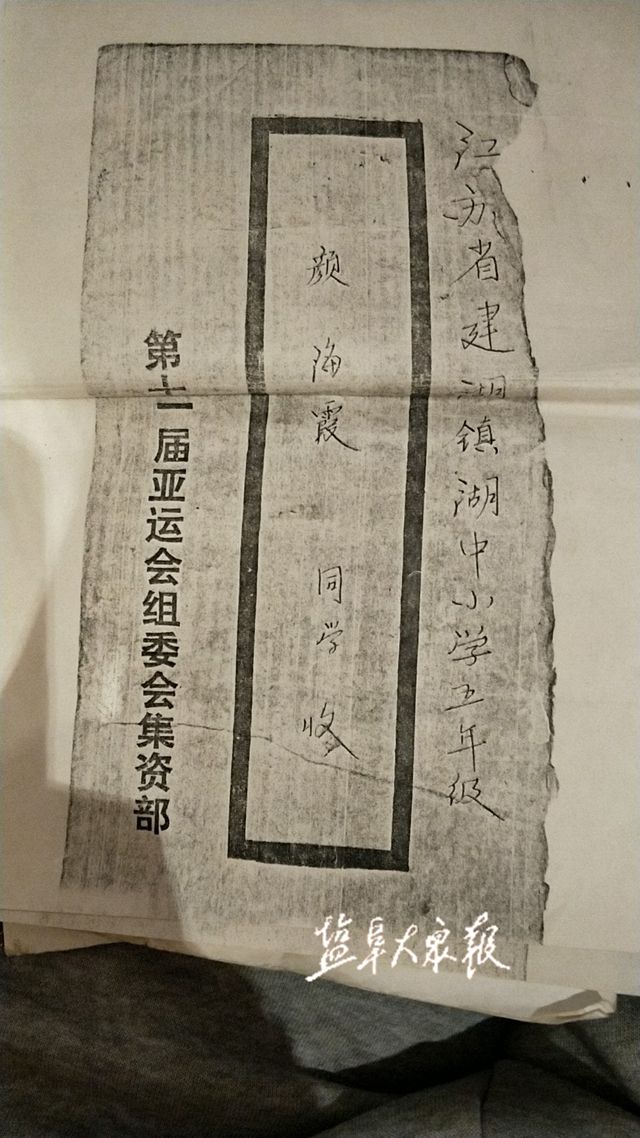 江苏省建湖镇湖中小学五年级
颜海霞 同学 收
第十一届亚运会组委会集资部
塩阜大衆報